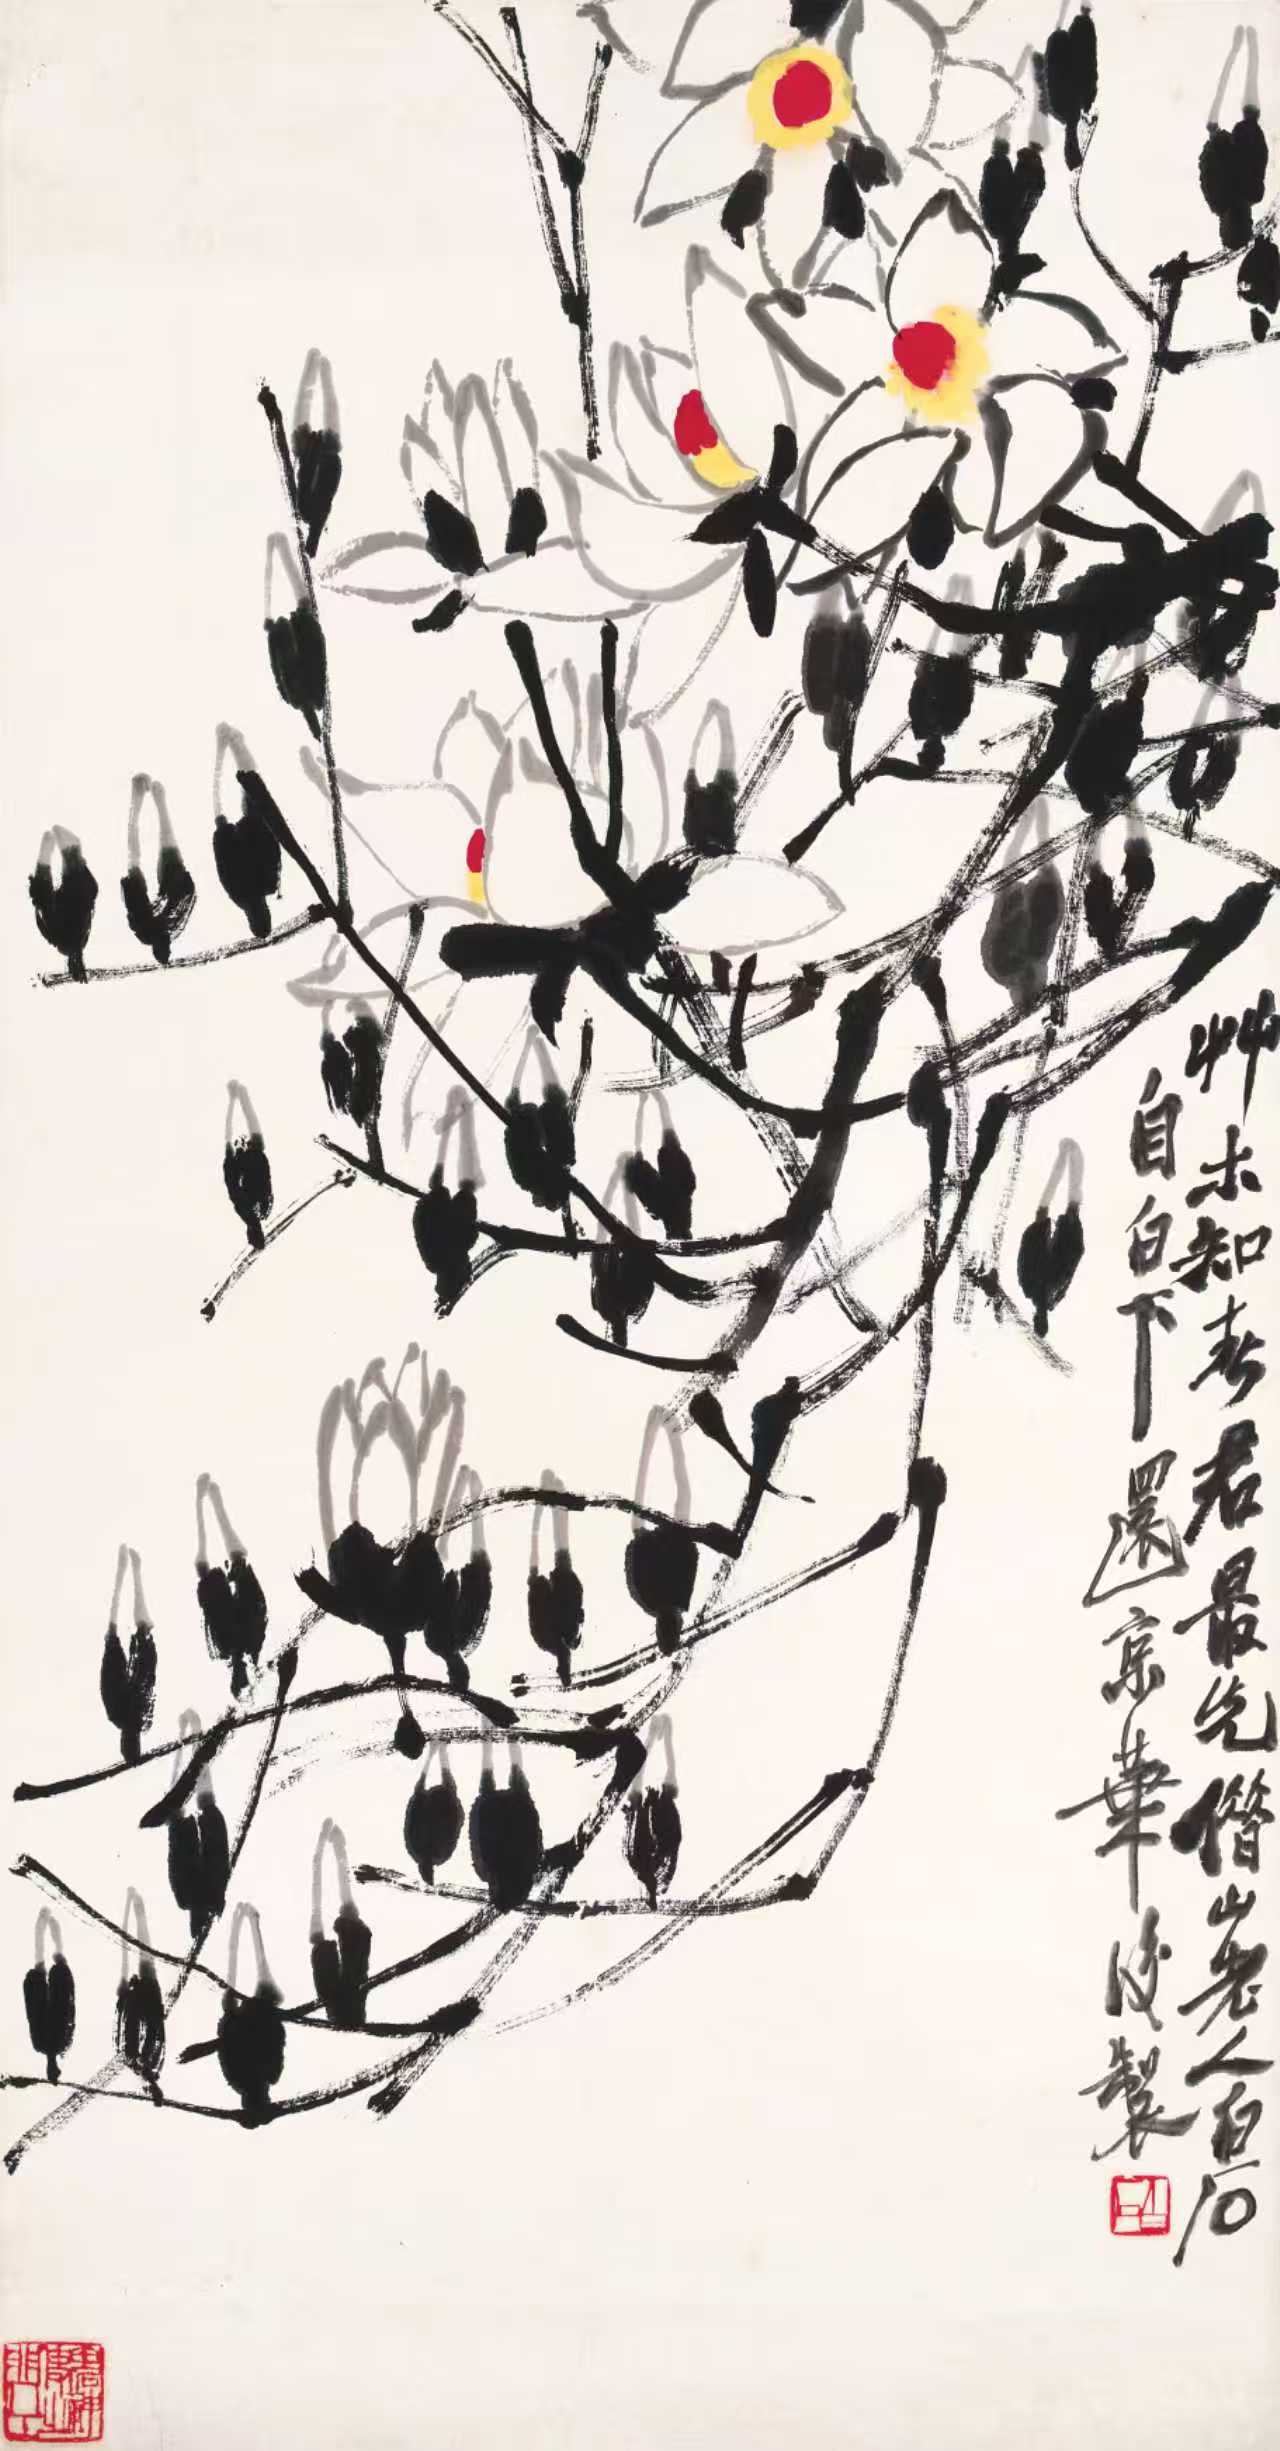 艸木知春君最先借山老人白石
自白下還京華後製